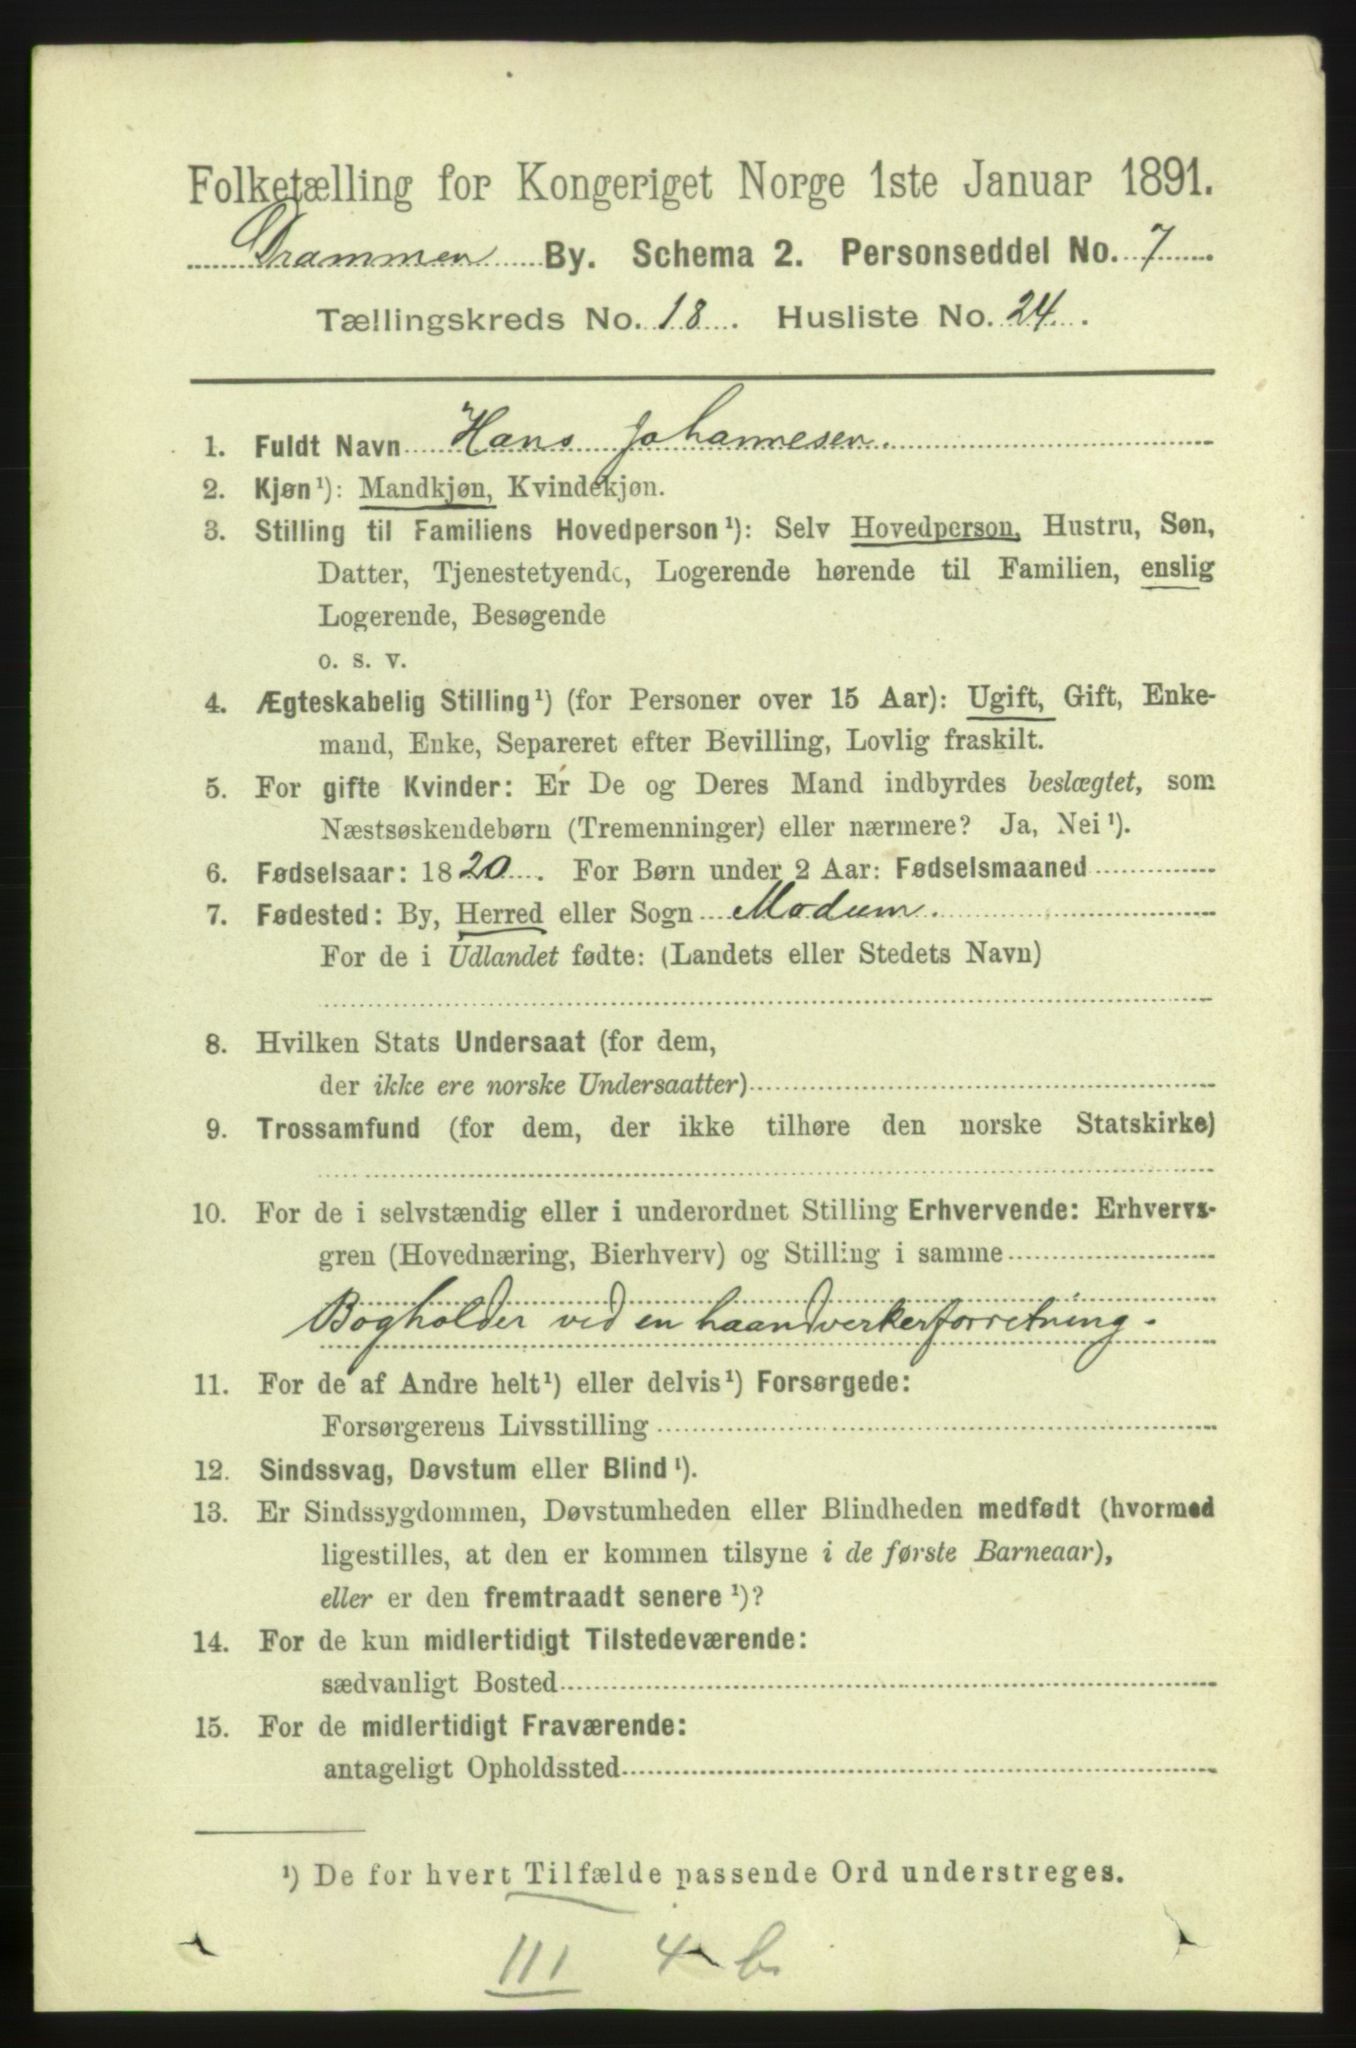 Folketælling for Kongeriget Norge 1ste Januar 1891.
Drammen By. Schema 2. Personseddel No. 7
Tællingskreds No. 18. Husliste No. 24.
1. Fuldt Navn Hans Johannesen.
2. Kjøn¹): Mandkjøn, Kvindekjøn.
3. Stilling til Familiens Hovedperson¹): Selv Hovedperson, Hustru, Søn,
Datter, Tjenestetyende, Logerende hørende til Familien, enslig
Logerende, Besøgende
o. s. v.
4. Ægteskabelig Stilling¹) (for Personer over 15 Aar): Ugift, Gift, Enke-
mand, Enke, Separeret efter Bevilling, Lovlig fraskilt.
5. For gifte Kvinder: Er De og Deres Mand indbyrdes beslægtet, som
Næstsøskendebørn (Tremenninger) eller nærmere? Ja, Nei¹).
6. Fødselsaar: 1820. For Børn under 2 Aar: Fødselsmaaned
7. Fødested: By, Herred eller Sogn Modum.
For de i Udlandet fødte: (Landets eller Stedets Navn)
8. Hvilken Stats Undersaat (for dem,
der ikke ere norske Undersaatter)
9. Trossamfund (for dem, der ikke tilhøre den norske Statskirke)
10. For de i selvstændig eller i underordnet Stilling Erhvervende: Erhvervs-
gren (Hovednæring, Bierhverv) og Stilling i samme
Bogholder ved en haandverkerforretning.
11. For de af Andre helt¹) eller delvis¹) Forsørgede:
Forsørgerens Livsstilling
12. Sindssvag, Døvstum eller Blind¹).
13. Er Sindssygdommen, Døvstumheden eller Blindheden medfødt (hvormed
ligestilles, at den er kommen tilsyne i de første Barneaar),
eller er den fremtraadt senere¹)?
14. For de kun midlertidigt Tilstedeværende:
sædvanligt Bosted
15. For de midlertidigt Fraværende:
antageligt Opholdssted
¹) De for hvert Tilfælde passende Ord understreges.
III 4 b